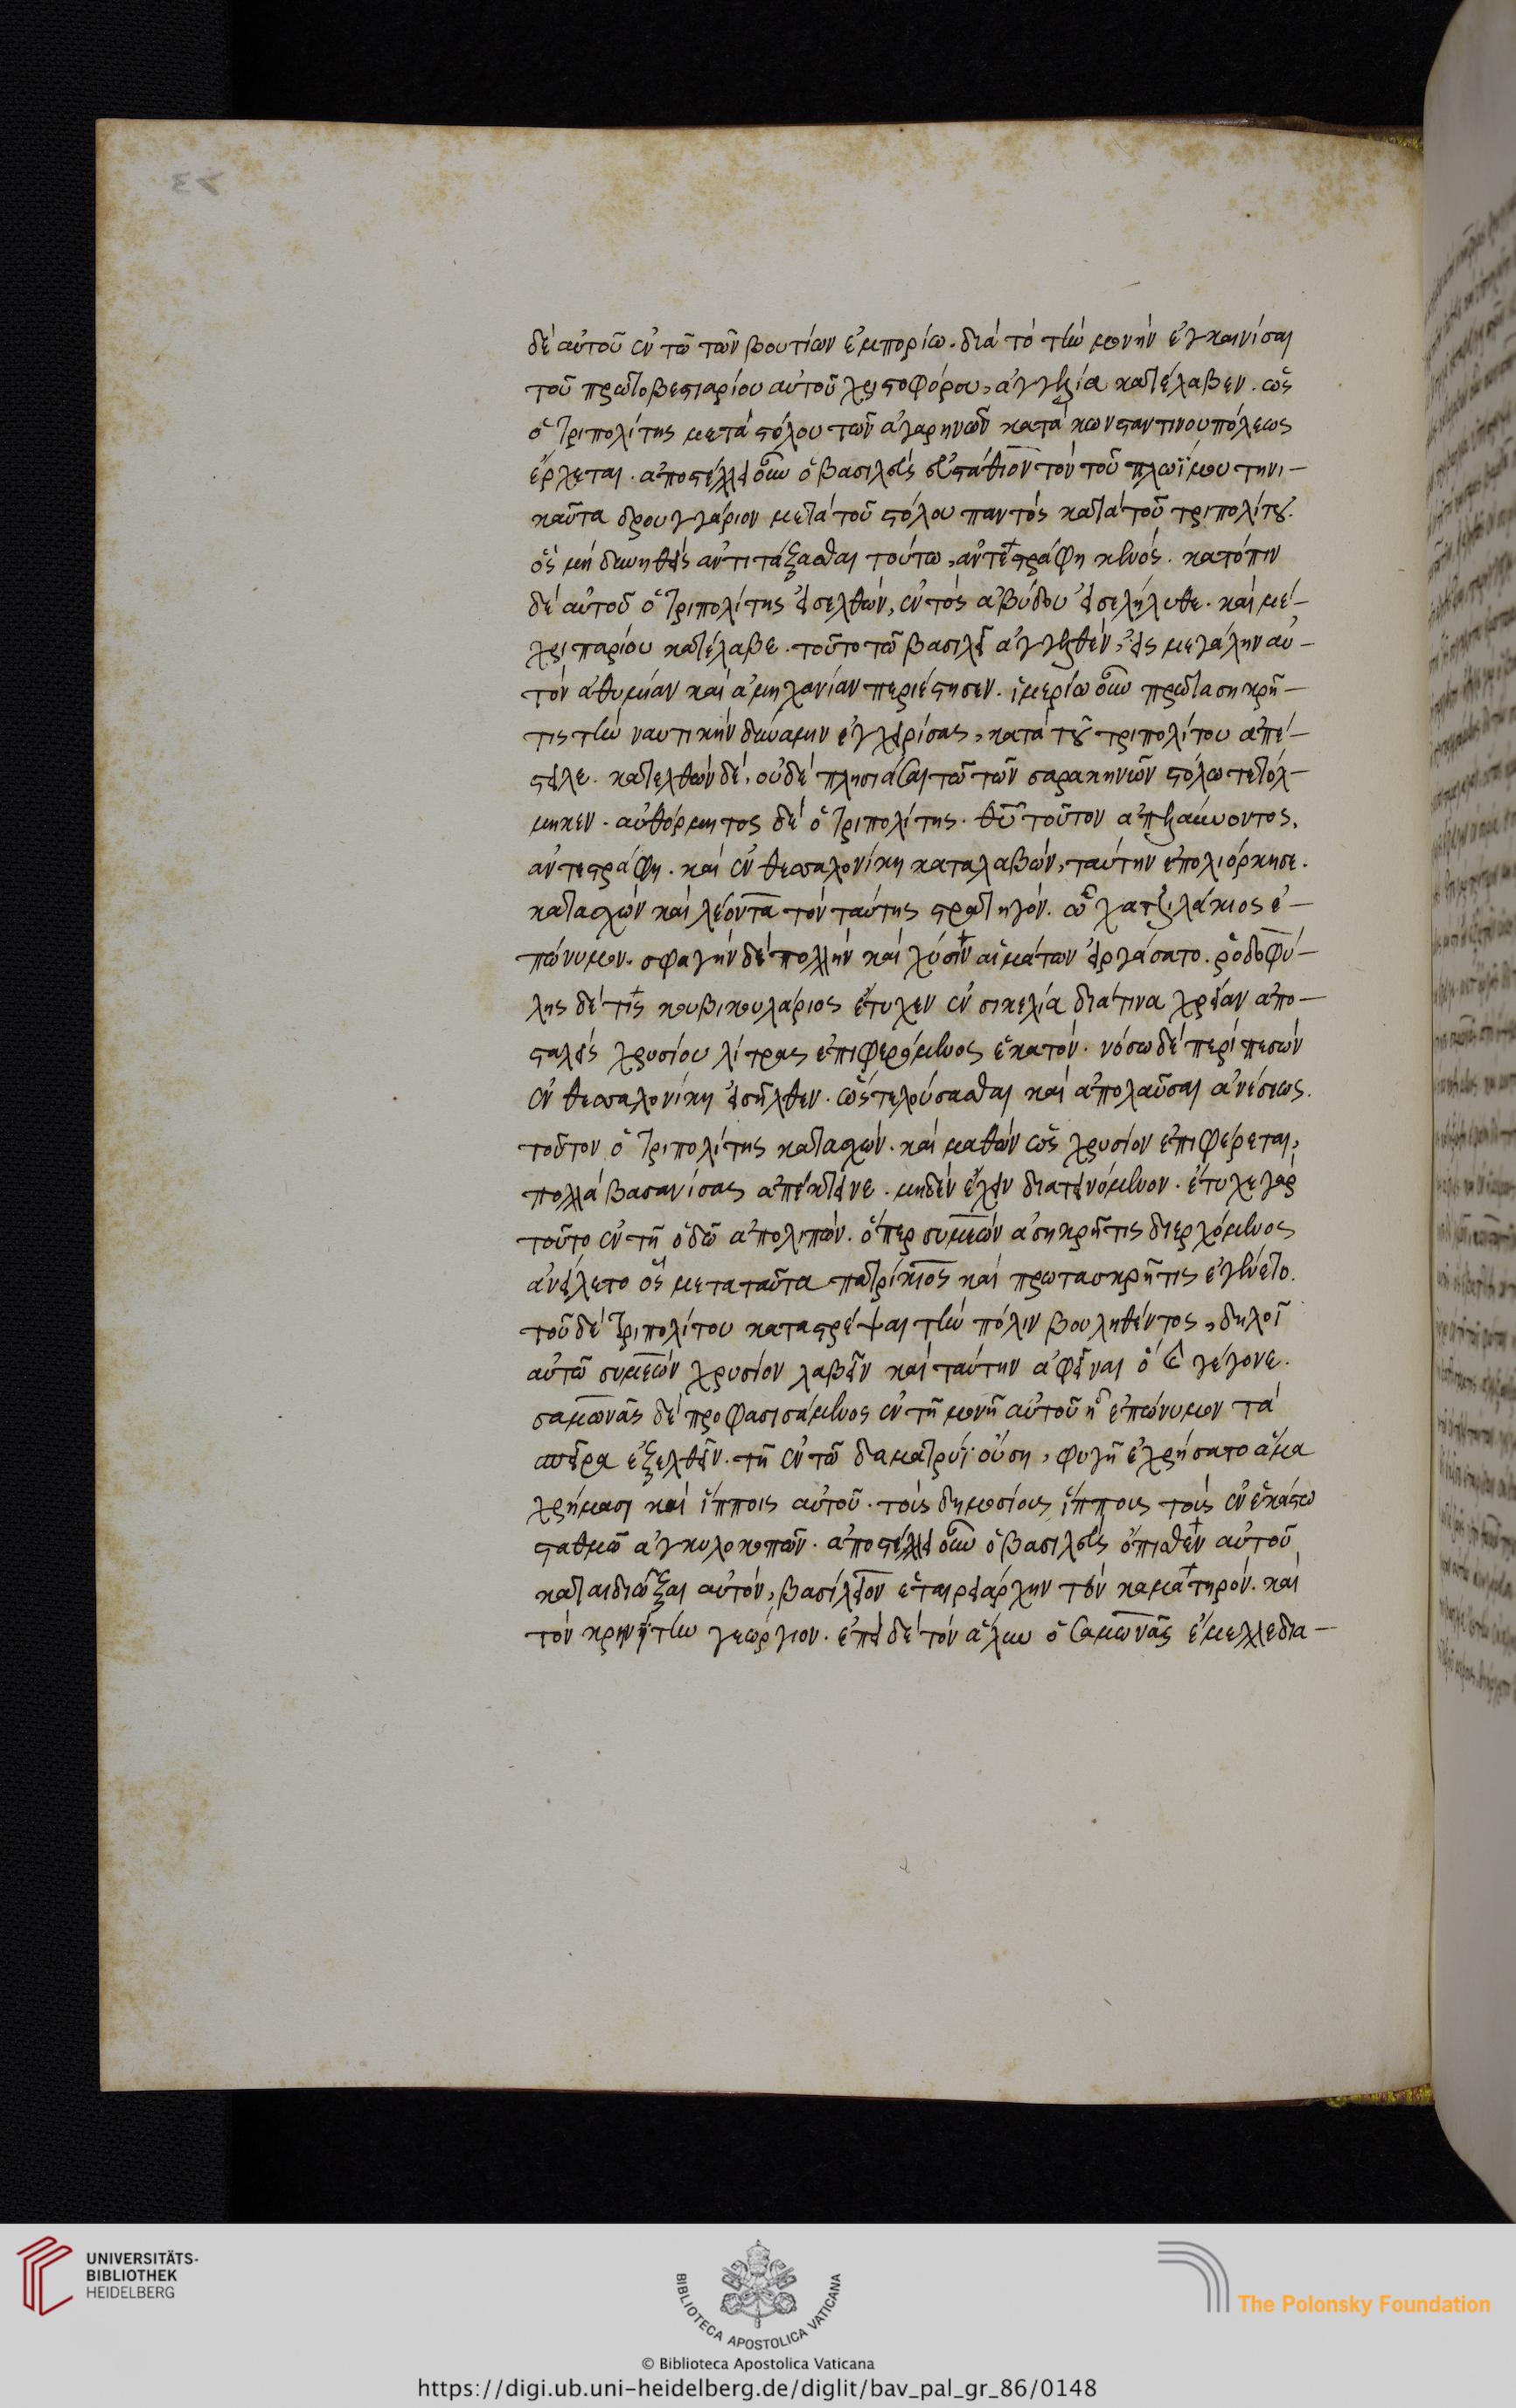 δὲ αὐτοῦ ἐν τῶ τῶν βουτίων ἐμπορίω. διὰ τὸ τὴν μονὴν ἐγκαινίσαι
τοῦ πρωτοβεστιαρίου αὐτοῦ χριστοφόρου, ἀγγελία κατέλαβεν. ὡς
ὁ Τριπολίτης μετὰ στόλου τῶν ἀγαρηνῶν κατὰ κωνσταντινουπόλεως
ἔρχεται. ἀποστέλλει οὖν ὁ βασιλεὺς εὐστάθιον τὸν τοῦ πλωΐμου τηνι-
καῦτα δρουγγάριον μετὰ τοῦ στόλου παντὸς κατὰ τοῦ τριπολίτου.
ὃς μὴ δυνηθεὶς ἀντιτάξασθαι τούτω, ἀντεστράφη κενός. κατόπιν
δὲ αὐτοῦ ὁ Τριπολίτης εἰσελθών, ἐντὸς ἀβύδου εἰσελήλυθε. καὶ μέ-
χρι παρίου κατέλαβε. τοῦτο τῶ βασιλεῖ ἀγγελθέν, εἰς μεγάλην αὐ-
τὸν ἀθυμίαν καὶ ἀμηχανίαν περιέστησεν. ἱμερίω οὖν πρωτασηκρῆ-
τις τὴν ναυτικὴν δύναμιν ἐγχειρίσας, κατὰ τοῦ τριπολίτου ἀπέ-
στειλε. κατελθὼν δὲ, οὐδὲ πλησιάσαι τῶ τῶν σαρακηνῶν στόλω τετόλ-
μηκεν. αὐθόρμητος δὲ ὁ Τριπολίτης. θυ τοῦτον ἀπελαύνοντος,
ἀντεστράφη. καὶ ἐν θεσσαλονίκη καταλαβών, ταύτην ἐπολιόρκησε.
κατασχὼν καὶ λέοντα τὸν ταύτης στρατηγόν. ὧ χατζιλάκιος ἐ-
πώνυμον. σφαγὴν δὲ πολλὴν καὶ χύσιν αἱμάτων εἰργάσατο. ῥοδοφύ-
λης δέ τις κουβικουλάριος ἔτυχεν ἐν σικελία διά τινα χρείαν ἀπο-
σταλεὶς χρυσίου λίτρας ἐπιφερόμενος ἑκατόν. νόσω δὲ περιπεσὼν
ἐν θεσσαλονίκη εἰσῆλθεν. ὡς τελούσασθαι καὶ ἀπολαῦσαι ἀνέσεως.
τοῦτον ὁ Τριπολίτης κατασχών. καὶ μαθὼν ὡς χρυσίον ἐπιφέρεται,
πολλὰ βασανίσας ἀπέκτεινε. μηδὲν ἔχειν διατεινόμενον. ἔτυχε γὰρ
τοῦτο ἐν τῆ ὁδῶ ἀπολιπών. ὅπερ συμεὼν ἀσηκρῆτις διερχόμενος
ἀνείλετο ὃς μεταταῦτα πατρίκιος καὶ πρωτασκρῆτις ἐγένετο.
τοῦ δὲ Τριπολίτου καταστρέψαι τὴν πόλιν βουληθέντος, δηλοῖ
αὐτῶ συμεὼν χρυσίον λαβεῖν καὶ ταύτην ἀφεῖναι ὃ καὶ γέγονε.
σαμωνᾶς δὲ προφασισάμενος ἐν τῆ μονῆ αὐτοῦ ἧ ἐπώνυμον τὰ
σπεῖρα ἐξελθεῖν. τῆ ἐν τῶ δαματρύϊ οὔση, φυγῆ ἐχρήσατο ἅμα
χρήμασι καὶ ἵπποις αὐτοῦ. τοὺς δημοσίους ἵππους τοὺς ἐν ἑκάστω
σταθμῶ ἀγκυλοκοπῶν. ἀποστέλλει οὖν ὁ βασιλεὺς ὄπισθεν αὐτοῦ
καταιδιῶξαι αὐτόν, βασίλειον ἑταιρειάρχην τὸν καματηρόν. καὶ
τὸν κρηνήτην γεώργιον. ἐπεὶ δὲ τὸν ἅλυν ὁ σαμωνᾶς ἔμελλε δια-
UNIVERSITÄTS-
BIBLIOTHEK
HEIDELBERG
BIBLIOTECA APOSTOLICA VATICANA
The Polonsky Foundation
© Biblioteca Apostolica Vaticana
https://digi.ub.uni-heidelberg.de/diglit/bav_pal_gr_86/0148